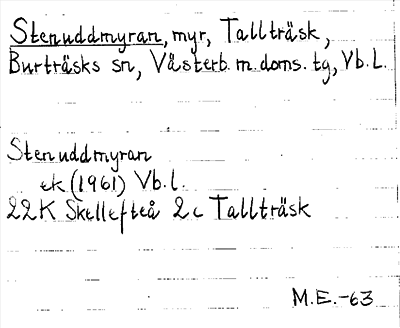 Stenuddmyran, myr, Tallträsk,
Burträsks sn, Västerb. m. doms. tg, Vb. L.
Stenuddmyran
ek (1961) Vb. l.
22K Skellefteå 2c Tallträsk
M.E.-63